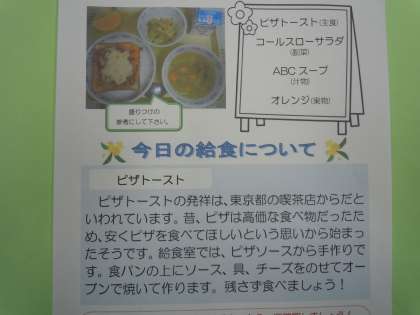 ピザトースト(主食)
コールスローサラダ
(副菜)
ABCスープ
(汁物)
オレンジ(果物)
盛りつけの
参考にして下さい。
今日の給食について
ピザトースト
ピザトーストの発祥は、東京都の喫茶店からだと
いわれています。昔、ピザは高価な食べ物だったた
め、安くピザを食べてほしいという思いから始まっ
たそうです。給食室では、ピザソースから手作りで
す。食パンの上にソース、具、チーズをのせてオー
ブンで焼いて作ります。残さず食べましょう!